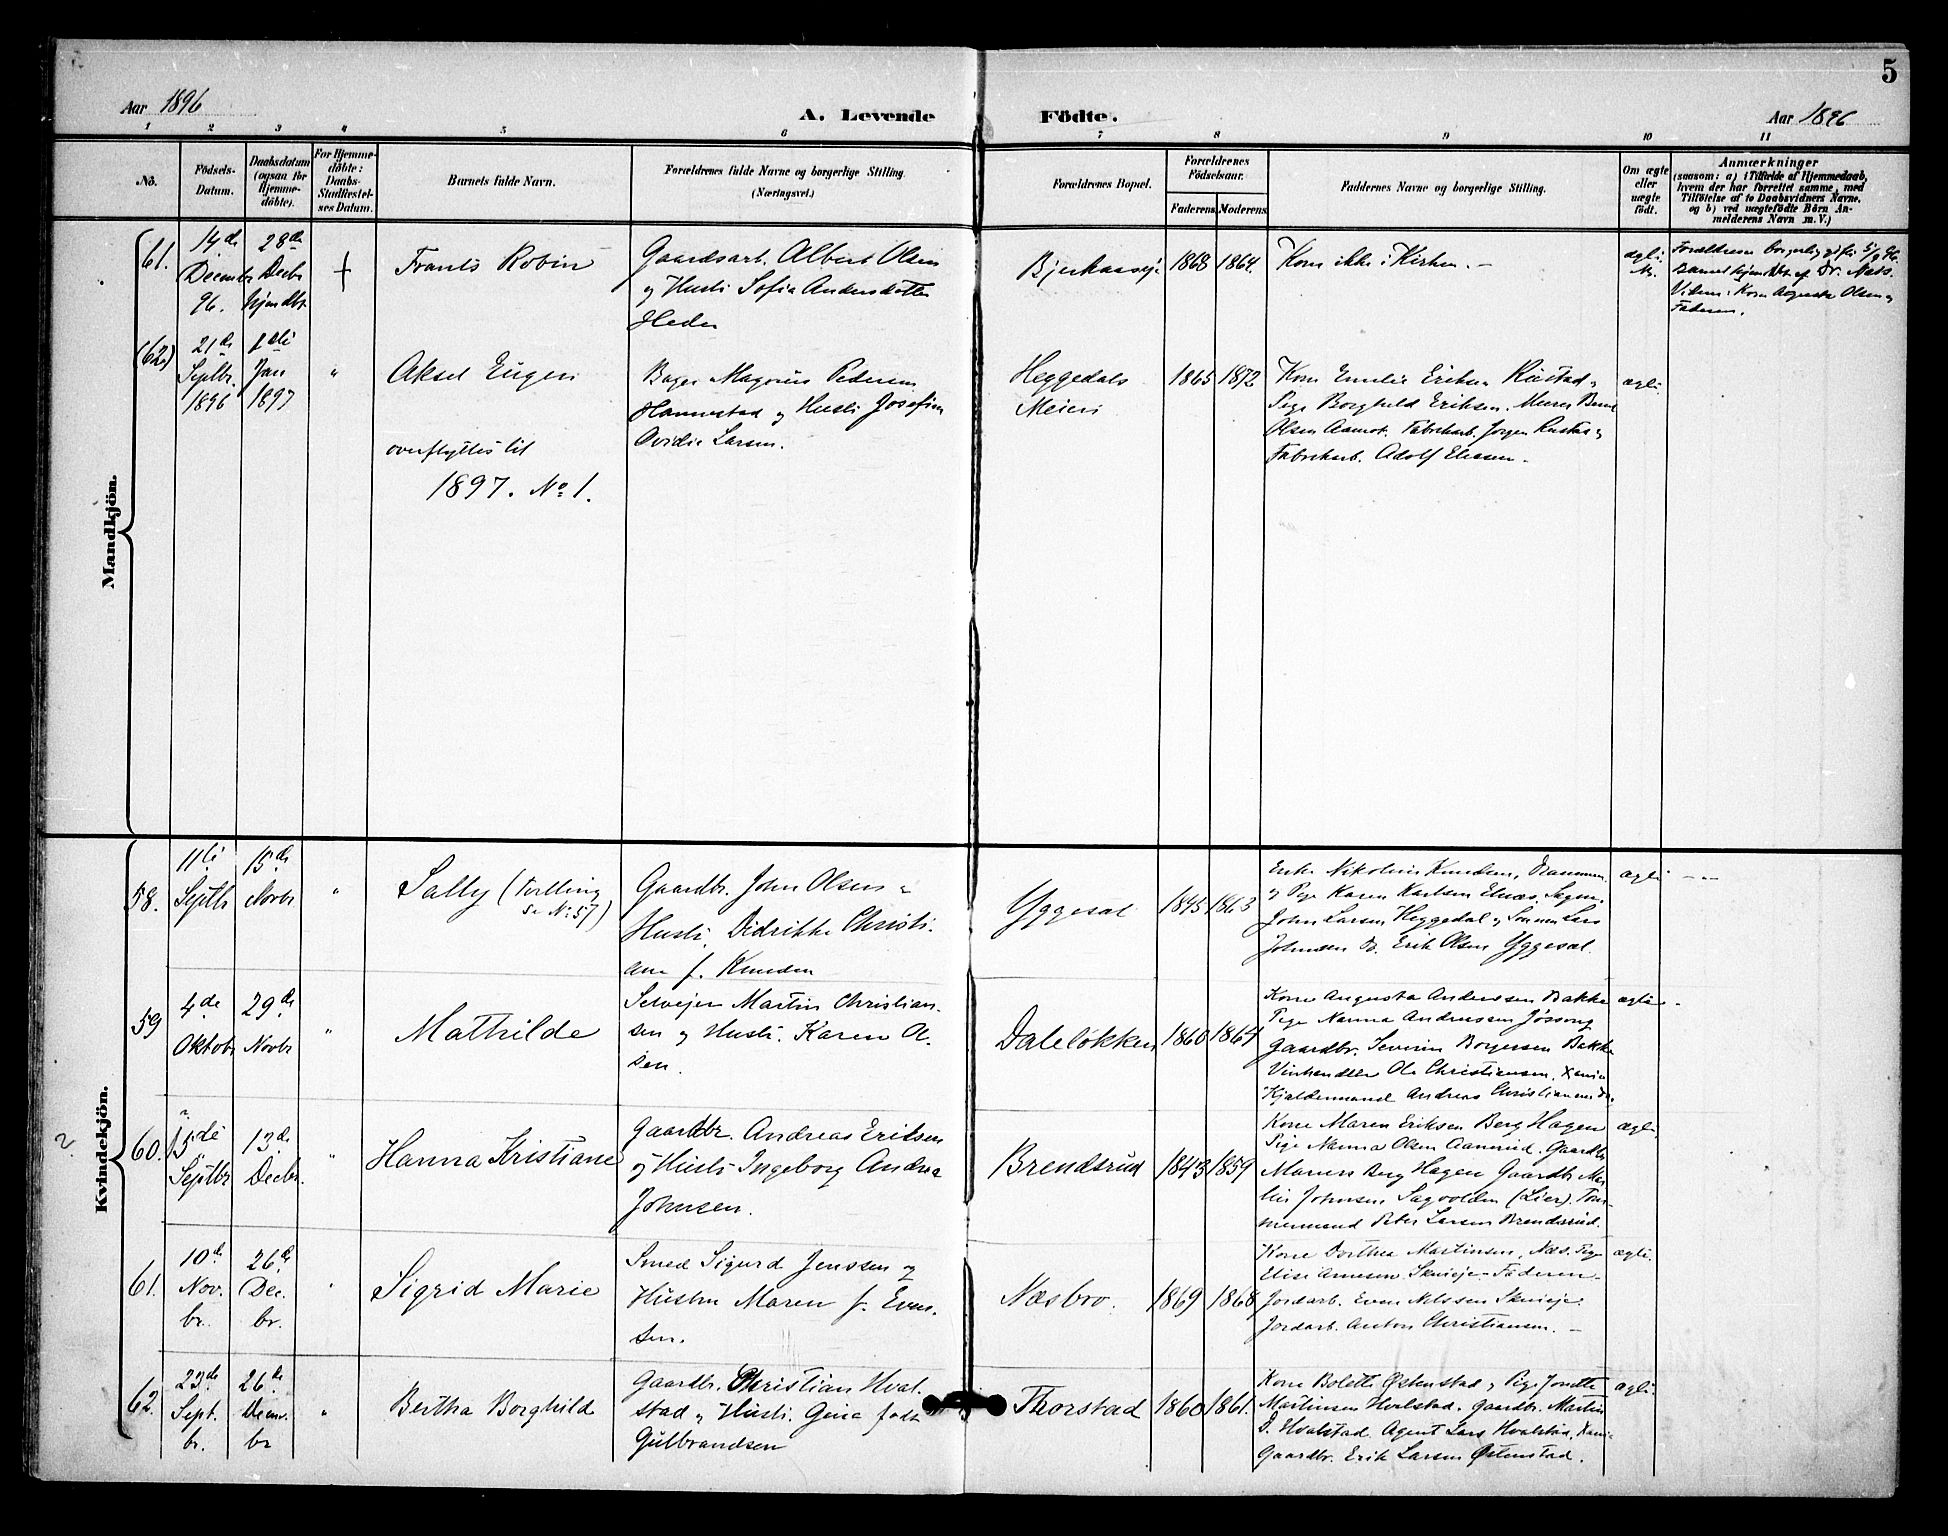 5
Aar 1896
A. Levende Födte.
Aar 1896
1 2 3 4 5 6 7 8 9 10 11
No.
Födsels-Datum.
Daabsdatum (ogsaa for Hjemme-döbte).
For Hjemme-döbte: Daabs-Stadfæstel-ses Datum.
Barnets fulde Navn.
Forældrenes fulde Navne og borgerlige Stilling.
(Næringsvei.)
Forældrenes Bopæl.
Forældrenes Födselsaar.
Faderens. Moderens.
Faddernes Navne og borgerlige Stilling.
Om ægte eller uægte födt.
Anmærkninger
(saasom: a) i Tilfælde af Hjemmedaab,
hvem der har forrettet samme, med
Tilföielse af to Daabsvidners Navne,
og b) ved uægtefödte Börn An-
melderens Navn m. V.)
Mandkjön.
61.
14de
Decembr
96.
28de
Decbr
hjemdbt.
Frants Robin
Gaardsarb. Albert Olsen
og Hustr. Sofia Andersdatter
Heder
1868 1864.
Kom ikke i Kirken. –
ægte
Barnet hjemdbt af Dr.
Faderen.
(62)
21de
Septbr.
1896
Jan
1897
"
Aksel Eugen
overflyttes til
1897. No 1.
Bager Magnus Pedersen
Hannestad og Hustr. Josefine
Ovidie Larsen.
Heggedals
Meieri
1865 1872
Kone Emilie Eriksen
Pige Borghild Eriksen. Murer
Olsen Aamot. Fabrikarb. Jørgen
Fabrikarb. Adolf
ægte
Kvindekjön.
58.
11te
Septbr
15de
Novbr
"
Sally (Tvilling
se No 57)
Gaardbr. John Olsen og
Hustr. Didrikke Christi-
ane f. Knudsen
Yggeset
1845 1863
Enke Nikoline Knudsen, Drammen
og Pige Karen Karlsen
John Larsen Heggedal og Sønnen Lars
Johnsen do. Erik Olsen Yggeset.
ægte
59
4de
Oktobr
29de
Novbr
"
Mathilde
Selveier Martin Christian-
sen og Hustr. Karen Ol-
sen.
Daleløkken
1860 1864
Kone Augusta Andersen Bakke
Pige Nanna Andersen Jøssong
Gaardbr. Severin Borgersen Bakke
Vinhandler Ole Christiansen, Xania
Kjældermand Andreas Christiansen do.
ægte
2
60.
Septbr
13de
Decbr.
"
Hanna Kristiane
Gaardbr. Andreas Eriksen
og Hustr. Ingeborg Andrea
Johnsen.
Brendsrud
1843 1859
Kone Maren Eriksen Berg Hagen
Pige Nanna Olsen Gaardbr.
Berg Hagen Gaardbr. Mar-
tin Johnsen Sagvolden (Lier). Tøm-
mermand Peter Larsen Brendsrud.
ægte
61.
10de
Nov.
br.
26de
Dec.
br.
"
Sigrid Marie
Smed Sigurd Jenssen og
Hustru Maren f. Even-
sen.
Næsbro.
1869 1868
Kone Dorthea Martinsen, Næs. Pige
Elise Arnesen Faderen
Jordarb. Even Nilssen
Jordarb. Anton Christiansen. –
ægte
62.
23de
Sept.
br.
26de
Decm.
br
"
Bertha Borghild
Gaardbr. Christian Hval-
stad og Hustr. Gina født
Gulbrandsen
Thorstad
1860 1861.
Kone Bolette Østenstad og Pige Jonette
Martinsen Hvalstad. Gaardbr. Martin
D. Hvalstad. Agent Lars Hvalstad, Xania
Gaardbr. Erik Larsen Østenstad.
ægte